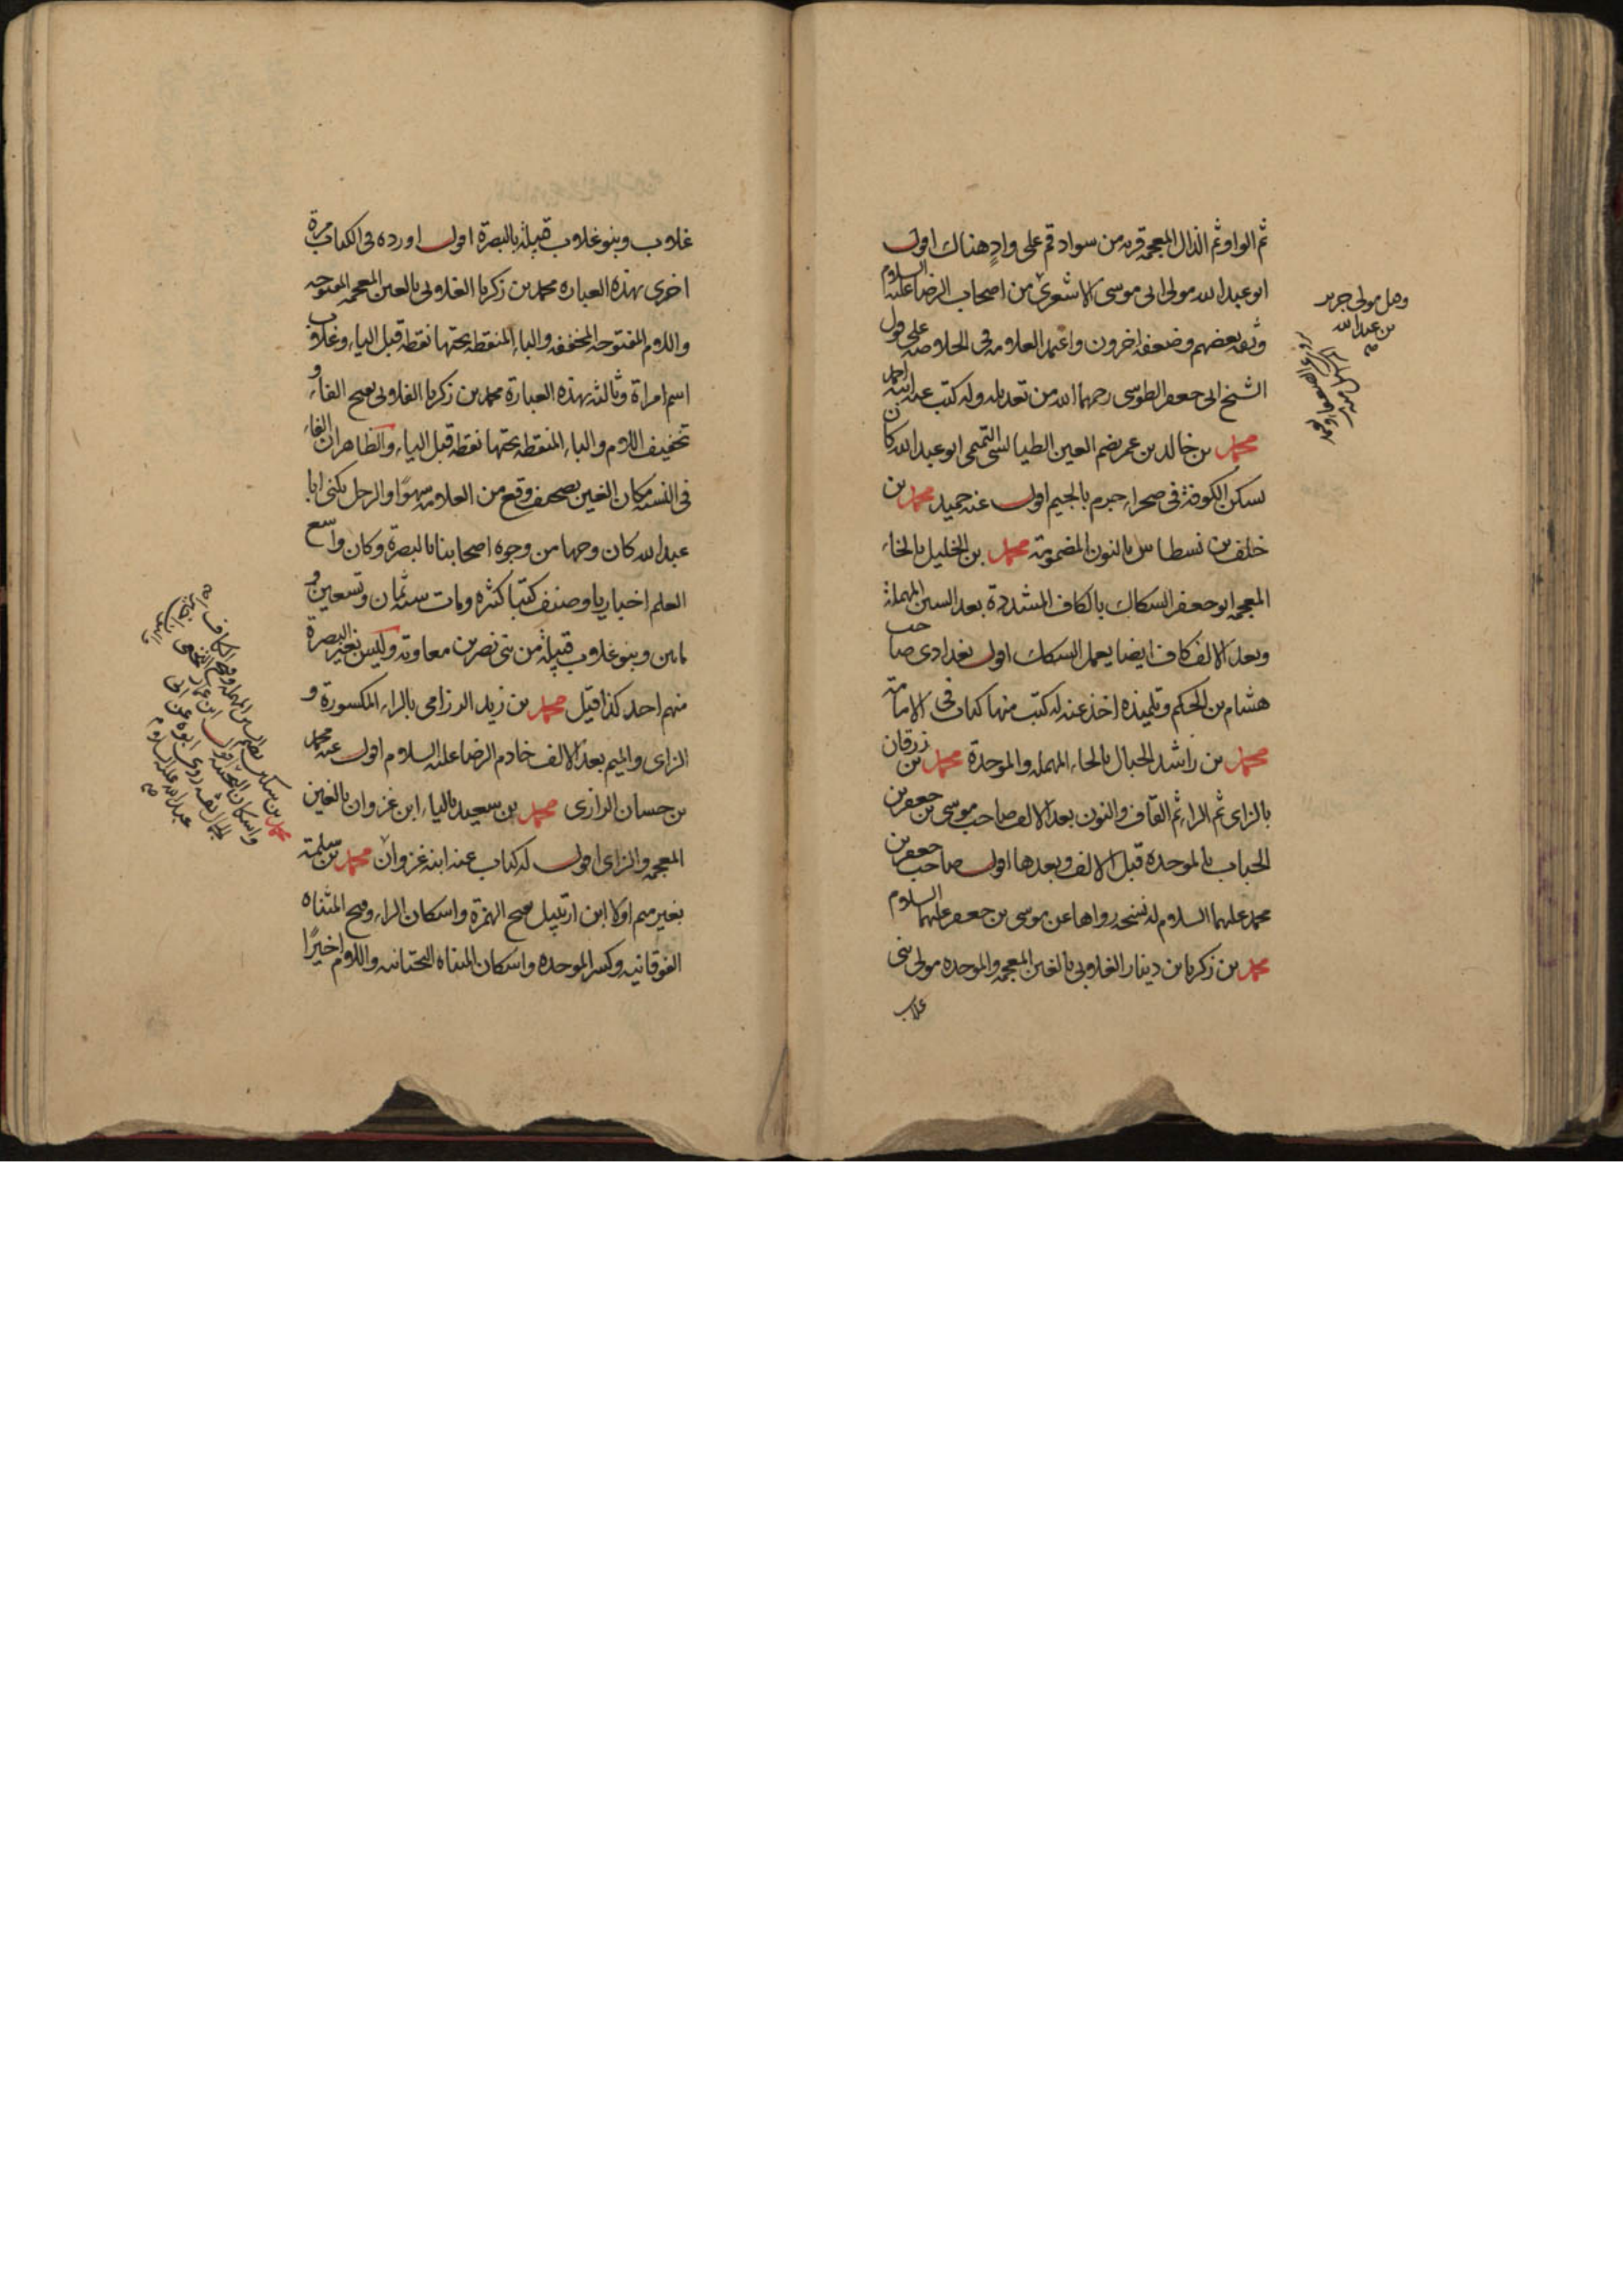 ثم الواو ثم الذال المعجمة قرية من سواد قم على وادٍ هناك اقول
ابو عبد الله مولى ابى موسى الاشعرى من اصحاب الرضا عليه السلام
وثقه بعضهم وضعفه اخرون واعتمد العلامة فى الخلاصة على قول
الشيخ ابى جعفر الطوسى رحمهما الله من تعديله وله كتب عنه ابنه احمد
محمد بن خالد بن عمر بضم العين الطيالسى التميمى ابو عبد الله كان
يسكن الكوفة فى صحراء جرم بالجيم اقول عنه حميد محمد بن
خلف بن نسطاس بالنون المضمومة محمد بن الخليل بالخاء
المعجمة ابو جعفر السكاك بالكاف المشددة بعد السين المهملة
وبعد الالف كاف ايضا يعمل السكك اقول بغدادى صاحب
هشام بن الحكم وتلميذه اخذ عنه له كتب منها كتاب فى الامامة
محمد بن راشد الحبال بالحاء المهملة والموحدة محمد بن زرقان
بالزاى ثم الراء ثم القاف والنون بعد الالف صاحب موسى بن جعفر بن
الحباب بالموحدة قبل الالف وبعدها اقول صاحب جعفر بن
محمد عليهما السلام له نسخة رواها عن موسى بن جعفر عليهما السلام
محمد بن زكريا بن دينار الغلابى بالغين المعجمة والموحدة مولى بنى
غلاب
وهل مولى جرير
بن عبد الله
صح
غلاب وبنو غلاب قبيلة بالبصرة اقول اورده فى الكتاب مرة
اخرى بهذه العبارة محمد بن زكريا الغلابى بالغين المعجمة المفتوحة
واللام المفتوحة المخففة والباء المنقطة تحتها نقطة قبل الياء وغلاب
اسم امراة وثالثة بهذه العبارة محمد بن زكريا الفلابى بفتح الفاء و
تخفيف اللام والباء المنقطة تحتها نقطة قبل الياء والظاهر ان الفاء
فى النسبة مكان الغين تصحيف وقع من العلامة سهوًا والرجل يكنى ابا
عبد الله كان وجها من وجوه اصحابنا بالبصرة وكان واسع
العلم اخباريا وصنف كتبا كثيرة ومات سنة ثمان وتسعين و
مايتين وبنو غلاب قبيلة من بنى نصر بن معاوية وليس بغير البصرة
منهم احد كذا قيل محمد بن زيد الرزامى بالراء المكسورة و
الزاى والميم بعد الالف خادم الرضا عليه السلام اقول عنه محمد
بن حسان الرازى محمد بن سعيد بالياء ابن غزوان بالغين
المعجمة والزاى اقول له كتاب عنه ابنه غزوان محمد بن سلمة
بغير ميم اولا ابن ارتبيل بفتح الهمزة واسكان الراء وفتح المثناة
الفوقانية وكسر الموحدة واسكان المثناة التحتانية واللام اخيرًا
محمد بن سكين بضم السين المهملة وفتح الكاف
واسكان التحتية اقول ابن عمار النخعى
الجمال ثقة روى ابوه عن ابى
عبد الله عليه السلام
صح